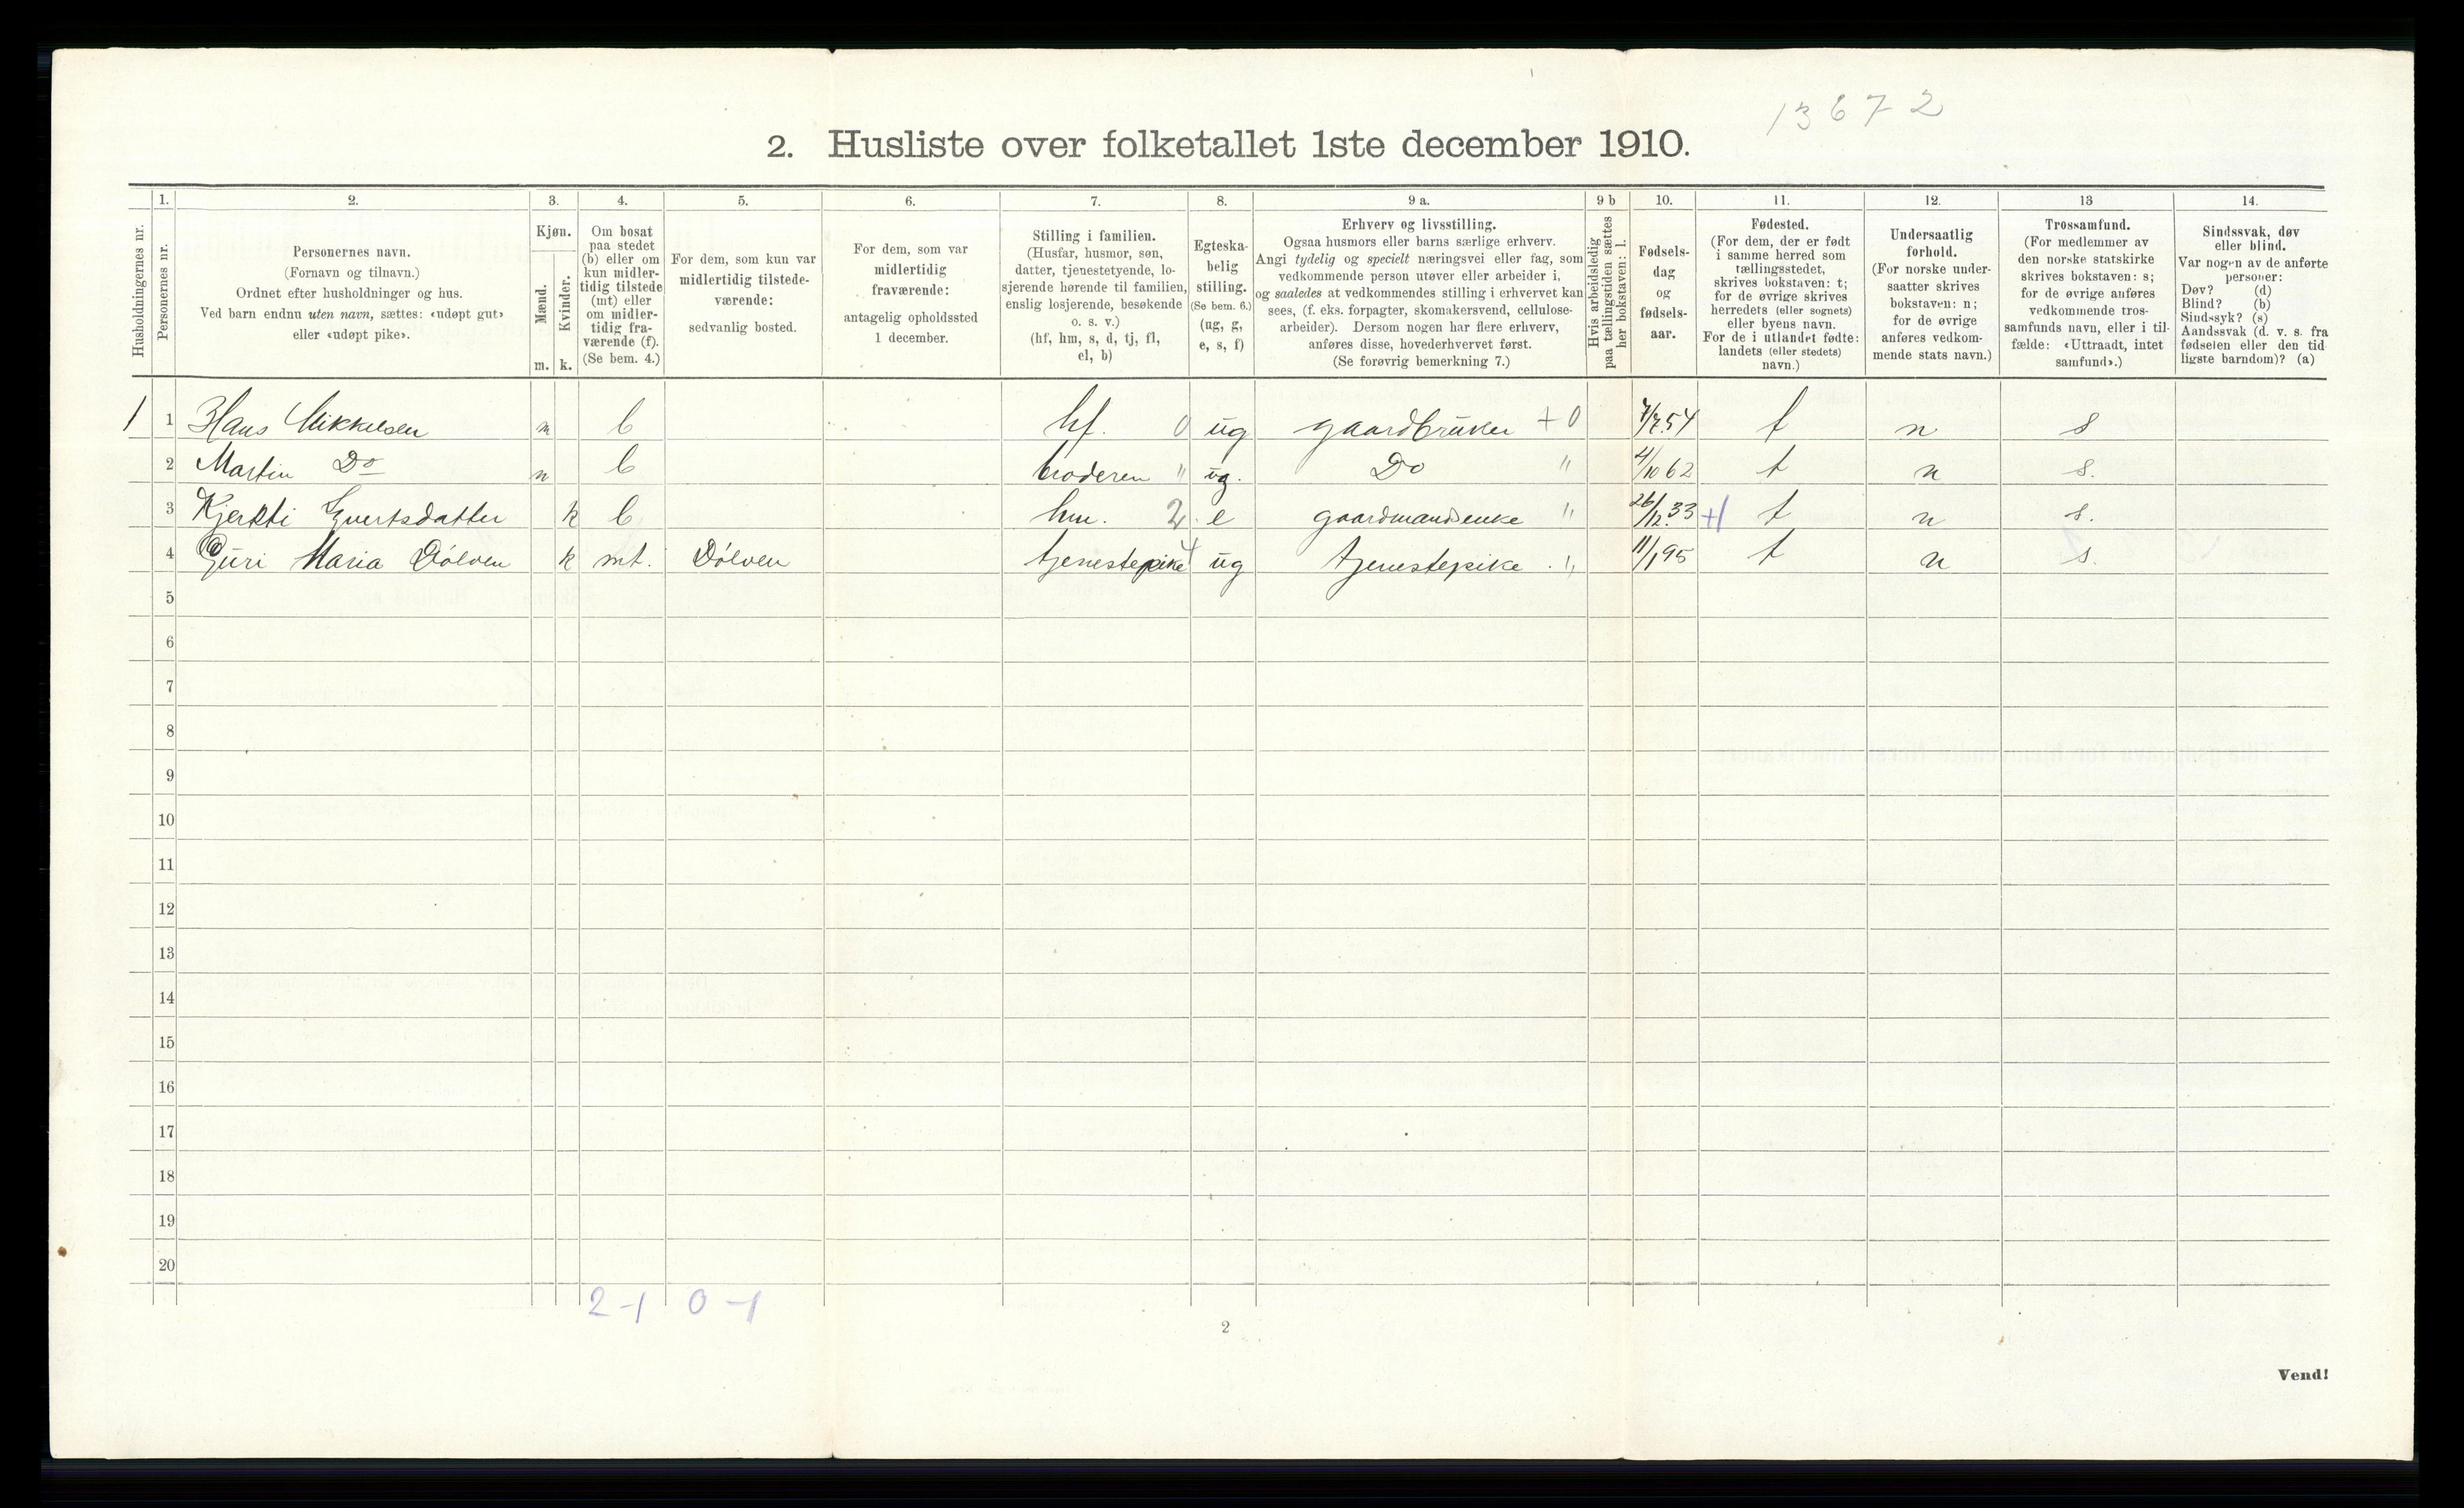 13672
2. Husliste over folketallet 1ste december 1910.
Husholdningernes nr.
1.
Personernes nr.
2.
Personernes navn.
(Fornavn og tilnavn.)
Ordnet efter husholdninger og hus.
Ved barn endnu uten navn, sættes: «udøpt gut»
eller «udøpt pike».
3.
Kjøn.
Mænd.
Kvinder.
m. k.
4.
Om bosat
paa stedet
(b) eller om
kun midler-
tidig tilstede
(mt) eller
om midler-
tidig fra-
værende (f).
(Se bem. 4.)
5.
For dem, som kun var
midlertidig tilstede-
værende:
sedvanlig bosted.
6.
For dem, som var
midlertidig
fraværende:
antagelig opholdssted
1 december.
7.
Stilling i familien.
(Husfar, husmor, søn,
datter, tjenestetyende, lo-
sjerende hørende til familien,
enslig losjerende, besøkende
o. s. v.)
(hf, hm, s, d, tj, fl,
el, b)
8.
Egteska-
belig
stilling.
(Se bem. 6.)
(ug, g,
e, s, f)
9 a.
Erhverv og livsstilling.
Ogsaa husmors eller barns særlige erhverv.
Angi tydelig og specielt næringsvei eller fag, som
vedkommende person utøver eller arbeider i,
og saaledes at vedkommendes stilling i erhvervet kan
sees, (f. eks. forpagter, skomakersvend, cellulose-
arbeider). Dersom nogen har flere erhverv,
anføres disse, hovederhvervet først.
(Se forøvrig bemerkning 7.)
9 b
Hvis arbeidsledig
paa tællingstiden sættes
her bokstaven: l.
10.
Fødsels-
dag
og
fødsels-
aar.
11.
Fødested.
(For dem, der er født
i samme herred som
tællingsstedet,
skrives bokstaven: t;
for de øvrige skrives
herredets (eller sognets)
eller byens navn.
For de i utlandet fødte:
landets (eller stedets)
navn.)
12.
Undersaatlig
forhold.
(For norske under-
saatter skrives
bokstaven: n;
for de øvrige
anføres vedkom-
mende stats navn.)
13
Trossamfund.
(For medlemmer av
den norske statskirke
skrives bokstaven: s;
for de øvrige anføres
vedkommende tros-
samfunds navn, eller i til-
fælde: «Uttraadt, intet
samfund».)
14.
Sindssvak, døv
eller blind.
Var nogen av de anførte
personer:
Døv? (d)
Blind? (b)
Sindssyk? (s)
Aandssvak (d. v. s. fra
fødselen eller den tid-
ligste barndom)? (a)
1 1 Hans Mikkelsen m b hf. 0 ug gaardbruker +0 7/7 54 t n s
2 Martin Do m b broderen " ug. Do " 4/10 62 t n s.
3 Kjersti Evertsdatter k b hm. 2 e gaardmandsenke " 26/12 33 +1 t n s.
4 Guri Maria Dólven k mt. Dólven tjenestepike 4 ug tjenestepike " 11/1 95 t n s.
5
6
7
8
9
10
11
12
13
14
15
16
17
18
19
20
2-1 0-1
2
Vend!